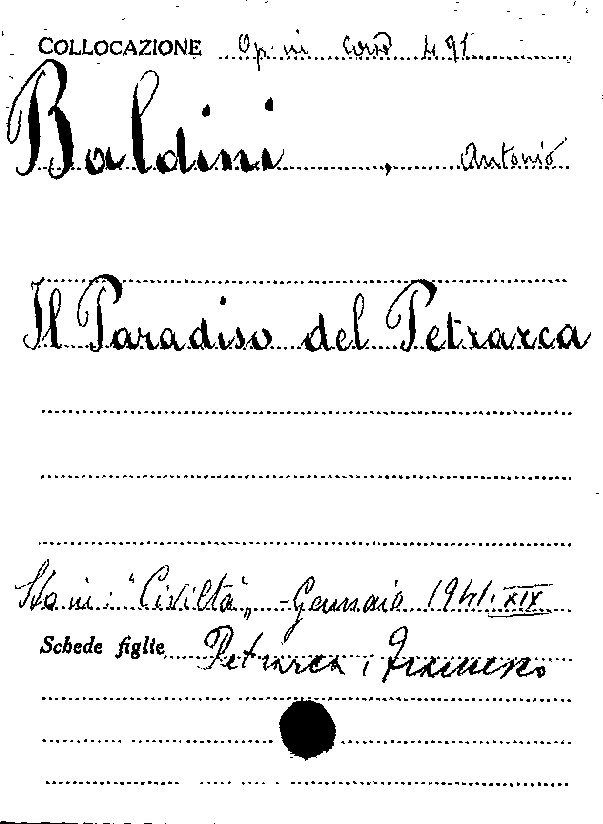 COLLOCAZIONE Op. in 491
Baldini, Antonio
Il Paradiso del Petrarca
Sta in: "Civiltà" - Gennaio 1941. XIX
Schede figlie Petrarca, Francesco